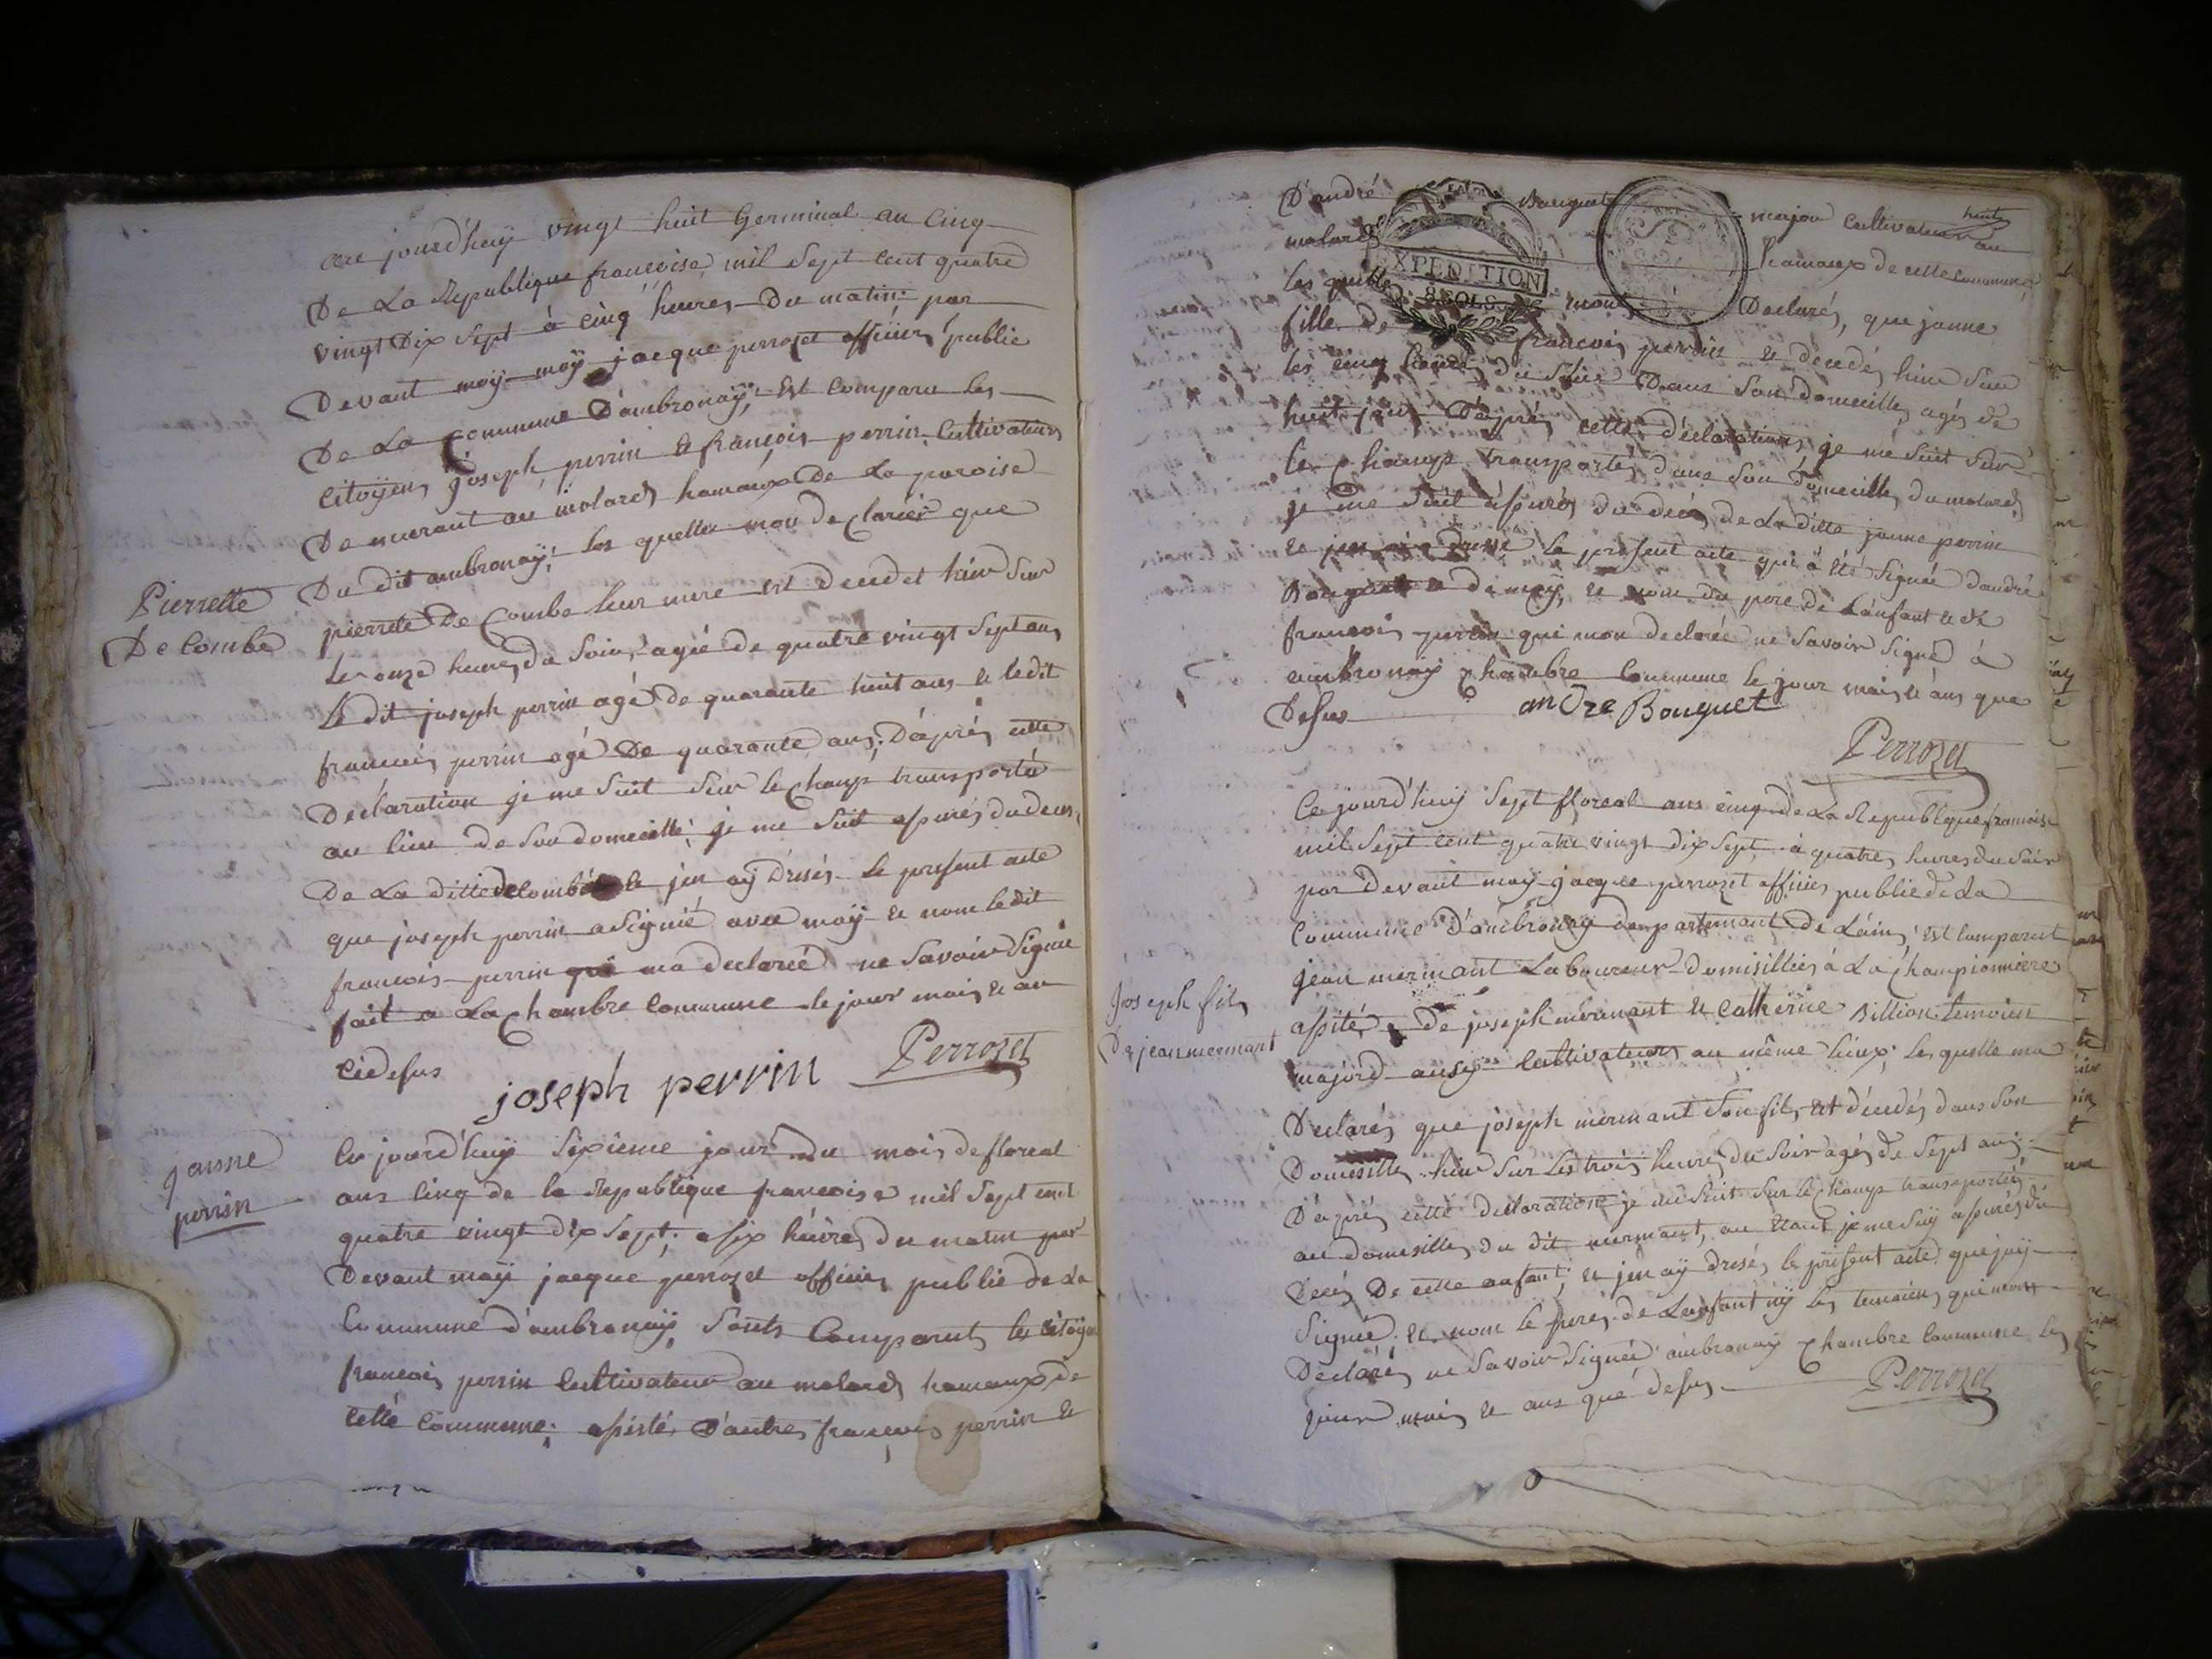 jourd'huy vingt huit Germinal an Cinq
De La Republique francoise, mil Sept Cent quatre
vingt Dix Sept à Cinq heures du matin par
Devant moy moÿ jacque perrozet officier public
De La Commune D'ambronaÿ, Est Comparu les
Citoÿens joseph perrin & françois perrin Cultivateurs
Demeurant au molard hamaux De La paroise
Du dit ambronaÿ, les quelles mon declarér que
Pierrette
De Combe
pierrete De Combe leur mere est decedet hier Sur
les onze heures du Soir, agée de quatre vingt Sept ans
Le dit joseph perrin agé de quarante huit ans & ledit
francois perrin agé De quarante ans; D'après cette
Déclaration je me Suit Sur le Champ transporté
au lieu de Son domecille, je me Suit assurés du deces
De La ditte decombe & jen aÿ Dresés le present acte
que joseph perrin a Signié avec moÿ & nom le dit
francois perrin qui ma declaréé ne Savoir Signée
fait a La Chambre Commune le jour mois & an
Cidesus
joseph perrin Perrozet
janne
perrin
Ce jourd'huÿ Sixieme jour du mois de floreal
ans Cinq de la Republique francoise mil Sept cent
quatre vingt dix Sept, a six heures du matin par
Devant moÿ jacque perrozet officier public de La
Commune d'ambronaÿ Sont Comparut les citoÿen
francois perrin Cultivateur au molard hamaux de
cette Commune; assisté, D'autres francois perrin &
D'andré Bouquet major Cultivateur au
molard hamaux de cette Commune
les quelle mont Declarés, que janne
fille de francois perrin & decedés hier Sur
les cinq heures du Soir Dans Son domecille, agés de
huit D'après cette déclaration je me Suit Sur
le Champ transportés dans Son Domecille du molard
je me Suit assurés du decés de La ditte janne perrin
& jen ai Dressé le present acte qui à été Signée dandré
Bouquet & de moÿ, & nom du pere de Lanfant & de
francois perrin qui mon declarée ne Savoir Signed à
ambronaÿ Chambre Commune le jour mois & ans que
Desus anDre Bouquet
Perrozet
EXPEDITION
8 SOLS
Ce jourd'huy Sept floreal ans cinq de La Republque francoise
mil Sept cent quatre vingt dix Sept à quatre heures du Soir
par devant moy jacque perrozet officier public de La
Commune D'ambronay departemant de Lain, est Comparut
Joseph fils
De jean mermant
jean mermant Laboureur domisilliés à La Championniere
assité, De joseph mermant & Catherine Billion temoien
majord Cultivateurs au même lieux, les quelle ma
Declarés que joseph mermant Son fils, est décedés dans Son
Domesille hier Sur Les trois heures du Soir agés de Sept ans,
D'après cette declaration je me Suit Sur le Champ transportés
au domesille du dit mermant, au étant je me Suÿ assurés du
Deces De cette anfant; & jen aÿ dresés le present acte que jaÿ
Signée & nom le pere de Lanfant nÿ les temoiens qui mont
Declarés ne Savoir Signée ambronaÿ Chambre Commune les
jour mois & ans que desus Perrozet